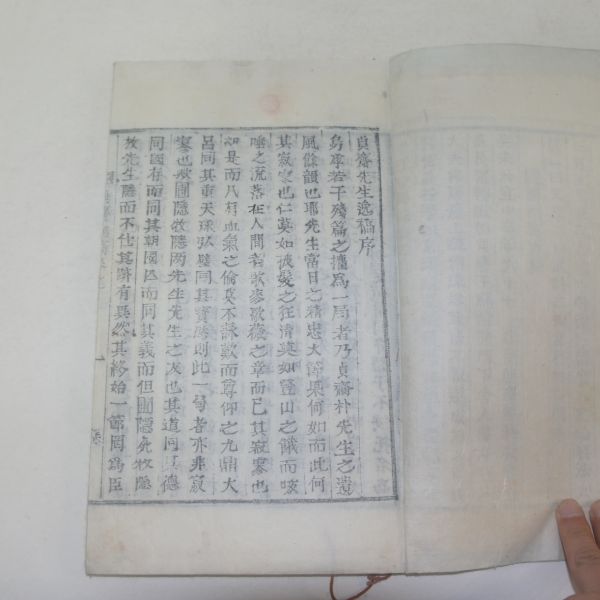 貞齋先生逸稿序
烏虖若干殘篇之攟爲一局者乃貞齋朴先生之遺
風餘韻也耶先生當日之精忠大節果何如而此何
其寂寥也仁莫如被髮之狂淸莫如登山之餓而咳
唾之流落在人間者歌麥歌薇之章而已其寂寥也
如是而凡有血氣之倫莫不詠歎而尊仰之九鼎大
呂同其重天球弘璧同其寶然則此一局者亦非寂
寥也歟圃隱牧隱兩先生先生之友也其道同其德
同國存而同其朝國亡而同其義而但圃隱死牧隱
放先生隱而不仕其跡有異然其終始一節罔爲臣